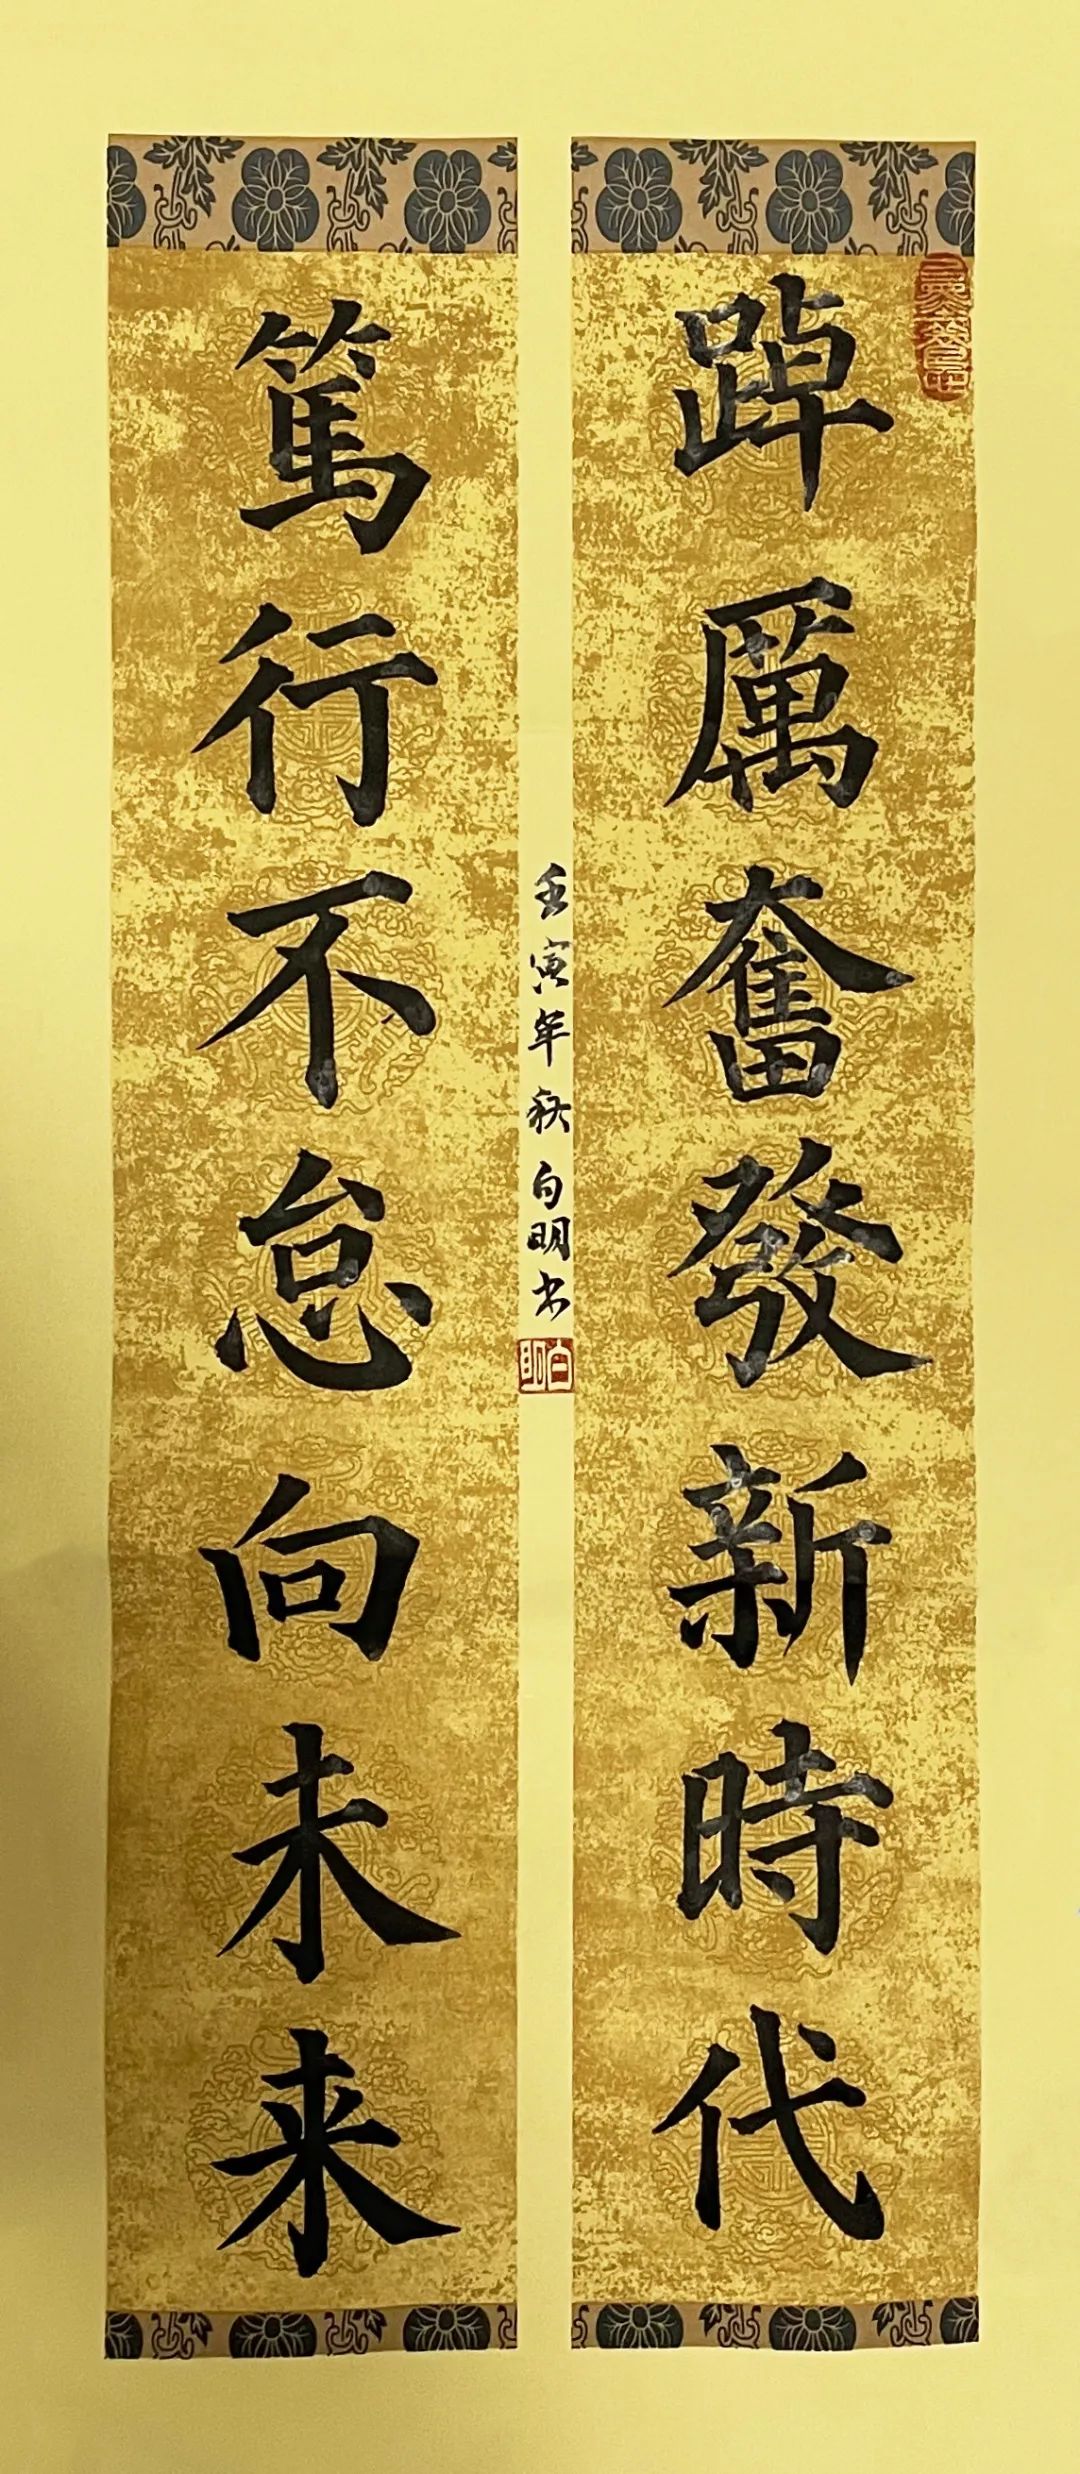 踔厲奮發新時代
篤行不怠向未来
壬寅年秋白明书
白明